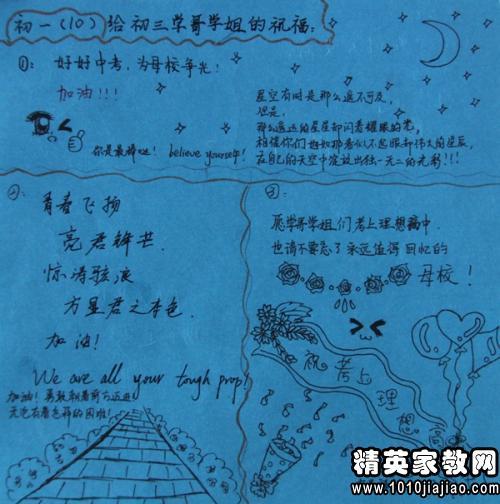 初一(10)给初三学哥学姐的祝福:
①:
好好中考,为母校争光!
加油!!!
你是最棒哒! believe yourself!
星空有时是那么遥不可及,
但是,
那么遥远的星星却闪着耀眼的光,
相信你们
在自己的天空中绽放出独一无二的光彩!!!
青春飞扬
亮君锋芒.
惊涛骇浪
方显君之本色.
加油!
We are all your tough prop!
加油!勇敢朝着前方迈进!
愿学哥学姐们考上理想高中.
也请不要忘了永远值得回忆的
母校!
祝考上理想
精英家教网
www.1010jiajiao.com